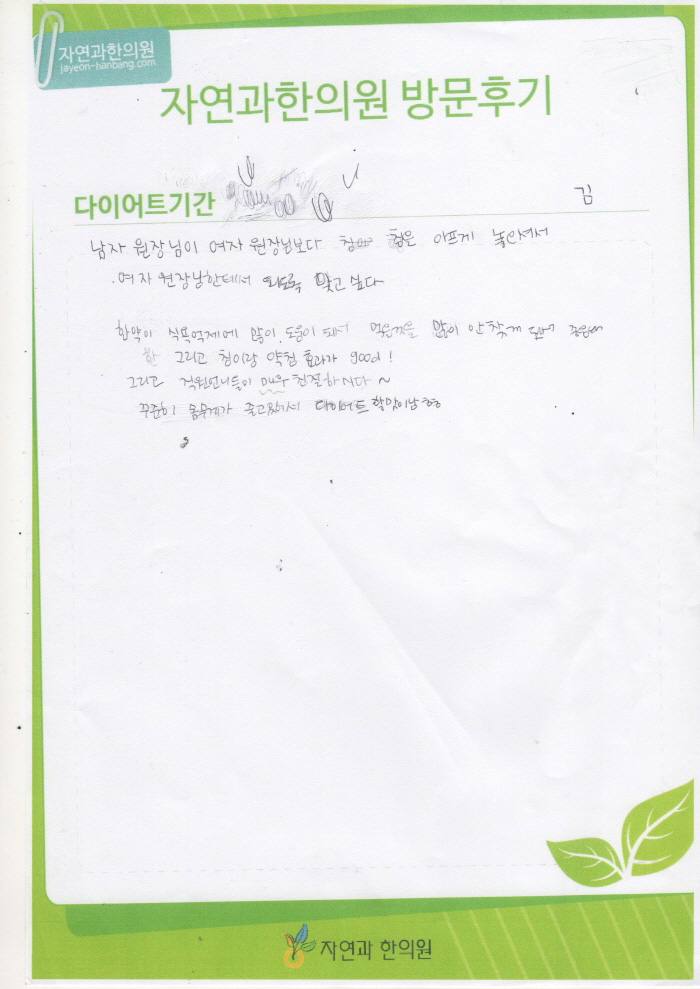 자연과한의원
jayeon-hanbang.com
자연과한의원 방문후기
다이어트기간
김
남자 원장님이 여자 원장님보다 침을 아프게 놓으셔서
여자 원장님한테서 되도록 맞고 싶다
한약이 식욕억제에 많이 도움이 돼서 먹을거를 많이 안 찾게
그리고 침이랑 약침 효과가 good!
그리고 직원언니들이 매우 친절하시다 ~
꾸준히 몸무게가 줄고있어서 다이어트 할맛이남
자연과 한의원